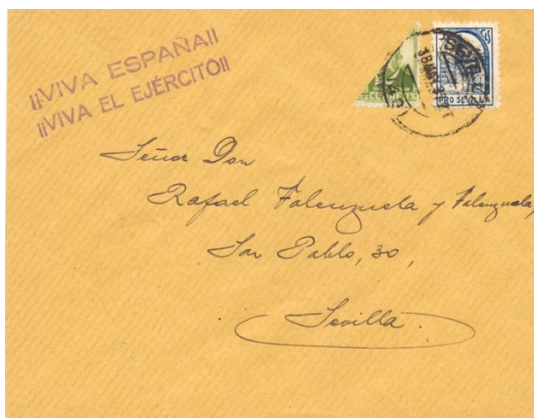 ¡¡VIVA ESPAÑA!!
¡¡VIVA EL EJÉRCITO!!
PRO SEVILLA
Señor Don
Rafael Valenzuela y Valenzuela,
San Pablo, 30,
Sevilla.